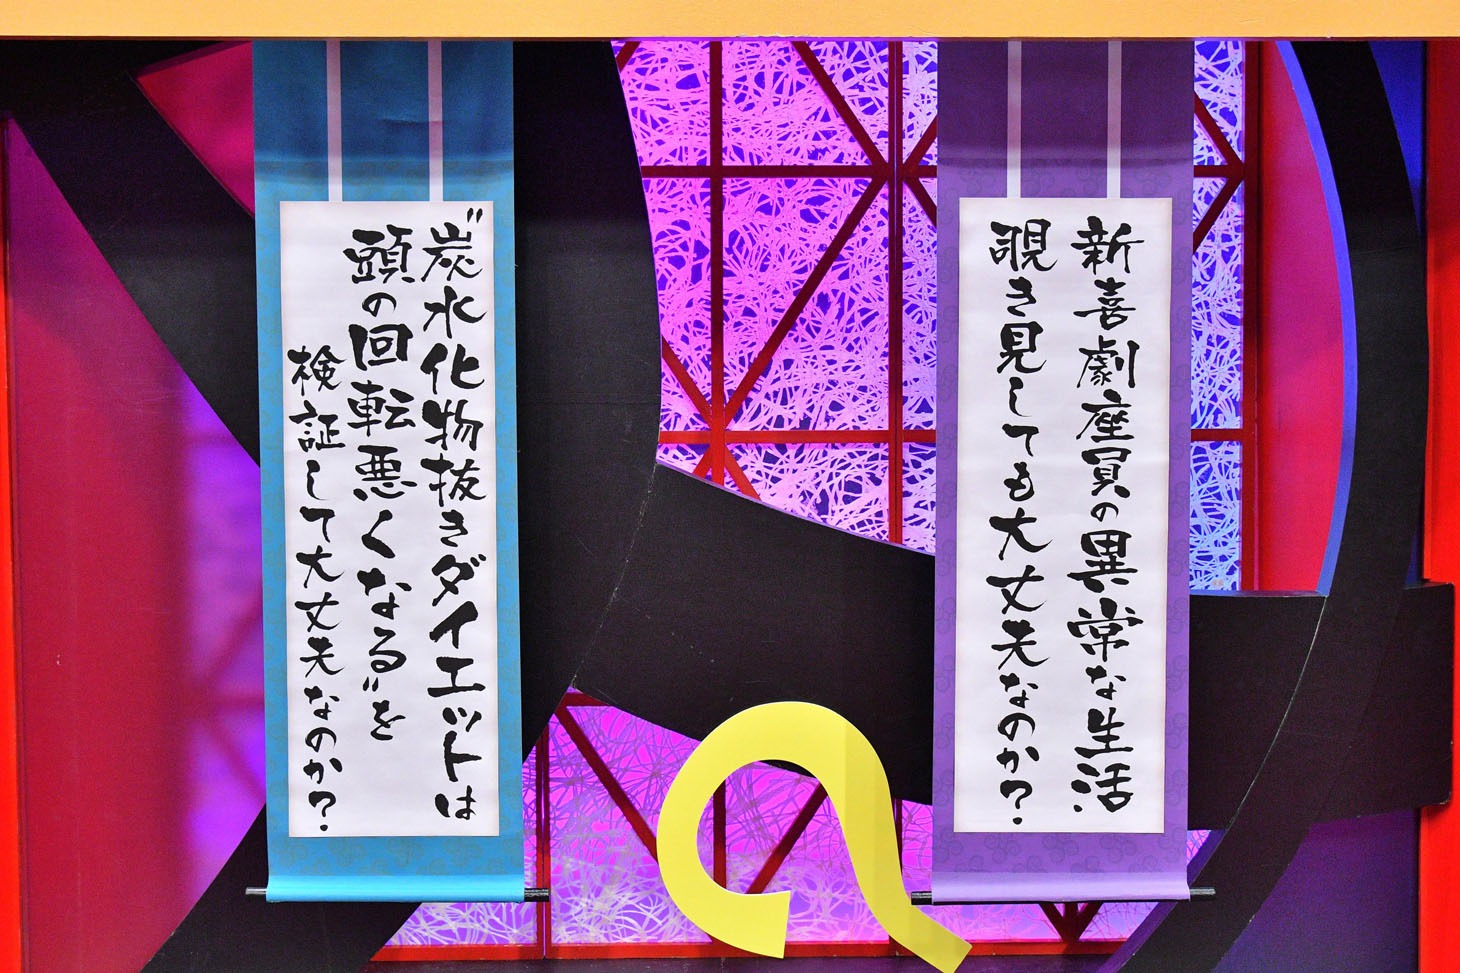 新喜劇座員の異常な生活
覗き見しても大丈夫なのか?
"炭水化物抜きダイエットは
頭の回転悪くなる"を
検証して大丈夫なのか?